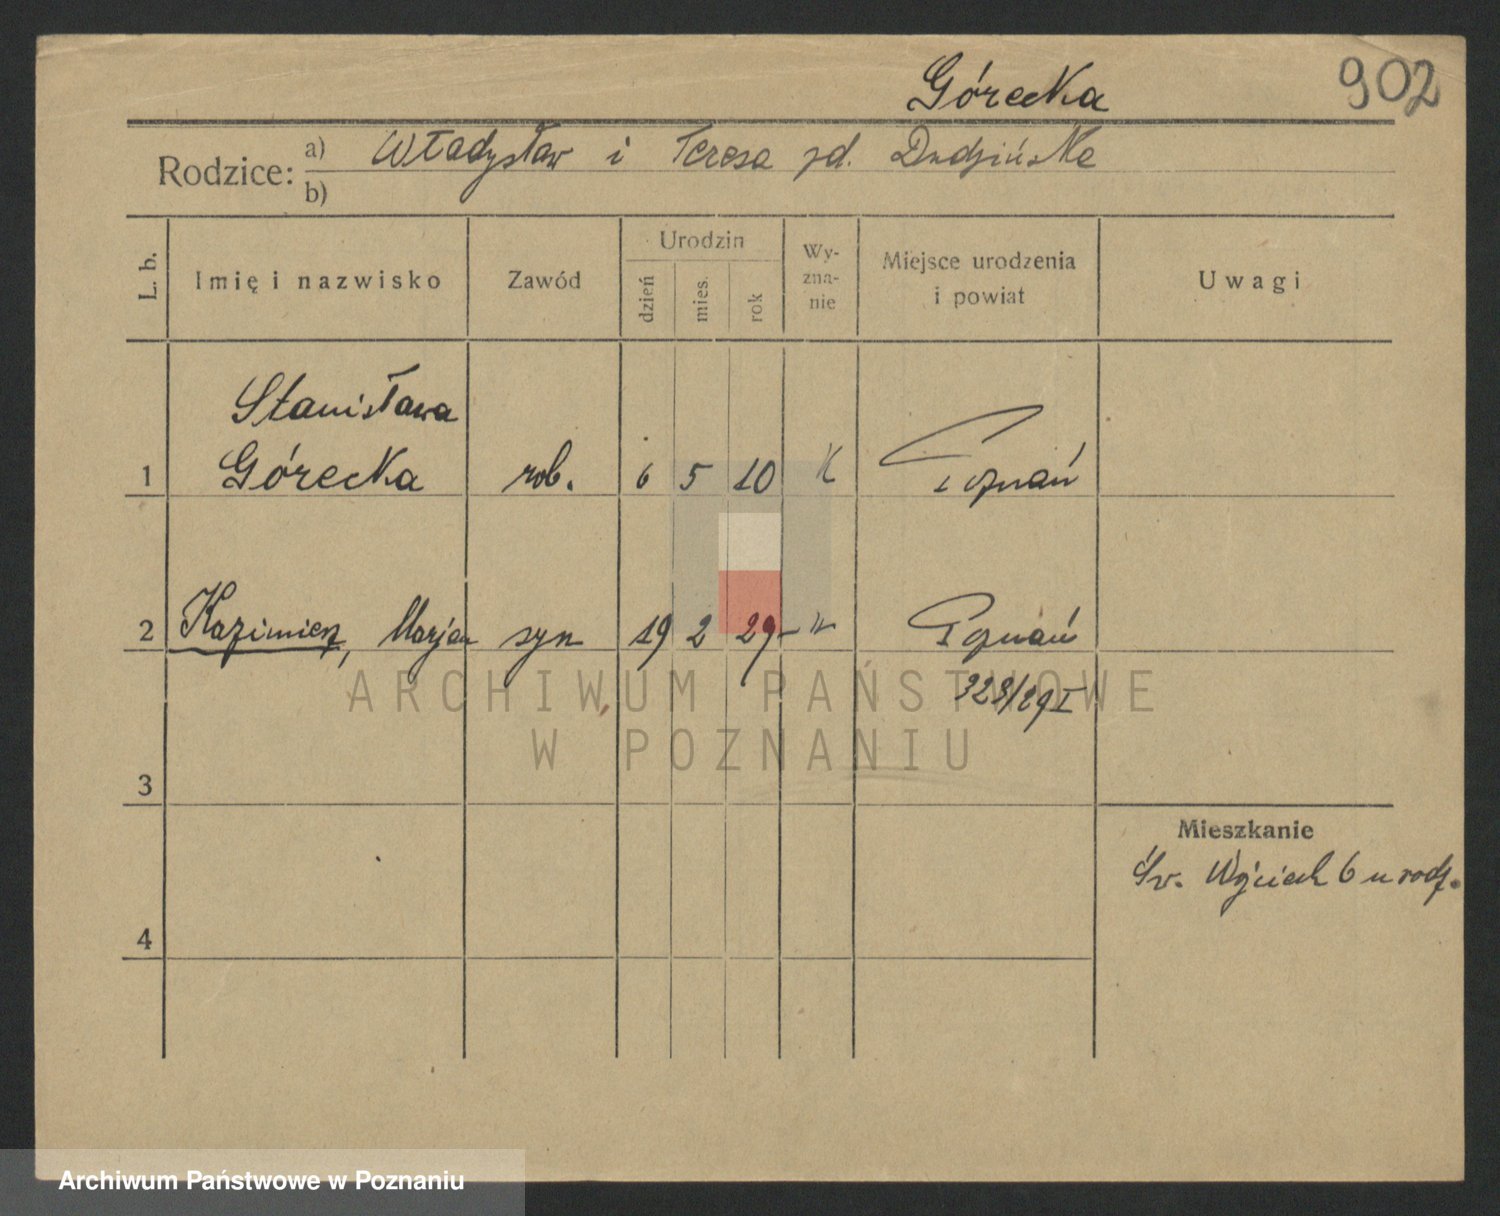 Górecka
902
Rodzice:
a) Władysław i Teresa zd. Dudzińska
b)
L. b.
Imię i nazwisko
Zawód
Urodzin
dzień
mies.
rok
Wy-
zna-
nie
Miejsce urodzenia
i powiat
Uwagi
Stanisława
1 Górecka rob. 6 5 10 K Poznań
2 Kazimierz, Marjan syn 19 2 29 - " - Poznań
328/29 I
3
Mieszkanie
Św. Wojciech 6 u rodz.
4
ARCHIWUM PAŃSTWOWE
W POZNANIU
Archiwum Państwowe w Poznaniu